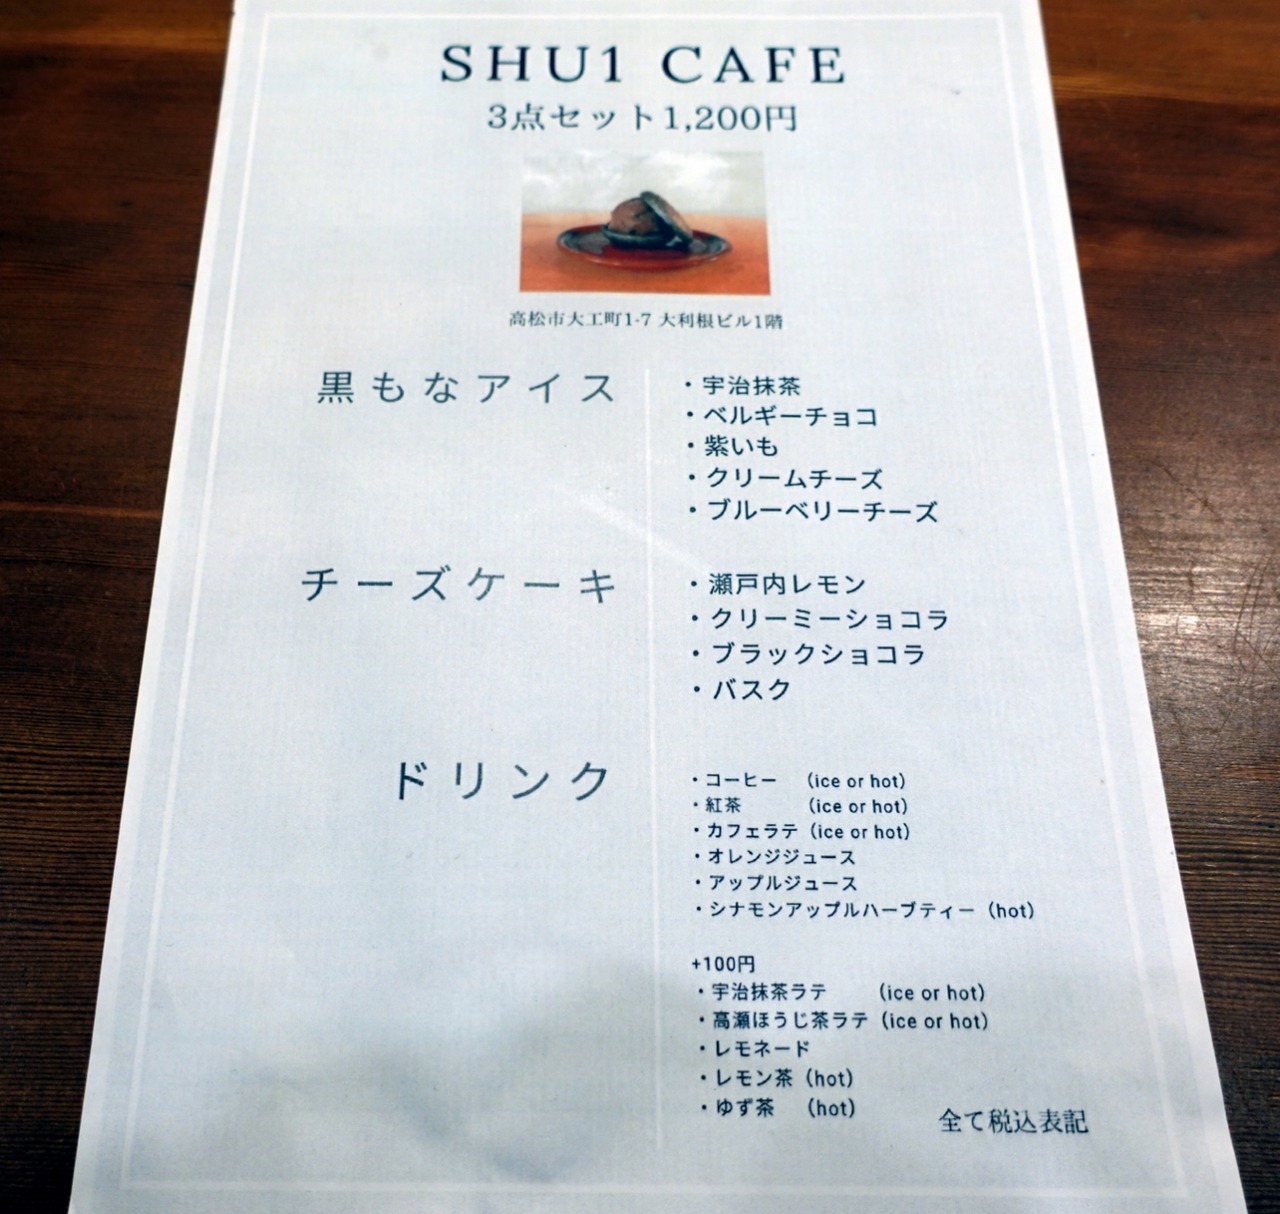 SHU1 CAFE
3点セット1,200円
高松市大工町1-7 大利根ビル1階
黒もなアイス
・宇治抹茶
・ベルギーチョコ
・紫いも
・クリームチーズ
・ブルーベリーチーズ
チーズケーキ
・瀬戸内レモン
・クリーミーショコラ
・ブラックショコラ
・バスク
ドリンク
・コーヒー （ice or hot）
・紅茶 （ice or hot）
・カフェラテ（ice or hot）
・オレンジジュース
・アップルジュース
・シナモンアップルハーブティー（hot）
+100円
・宇治抹茶ラテ （ice or hot）
・高瀬ほうじ茶ラテ（ice or hot）
・レモネード
・レモン茶（hot）
・ゆず茶 （hot）
全て税込表記